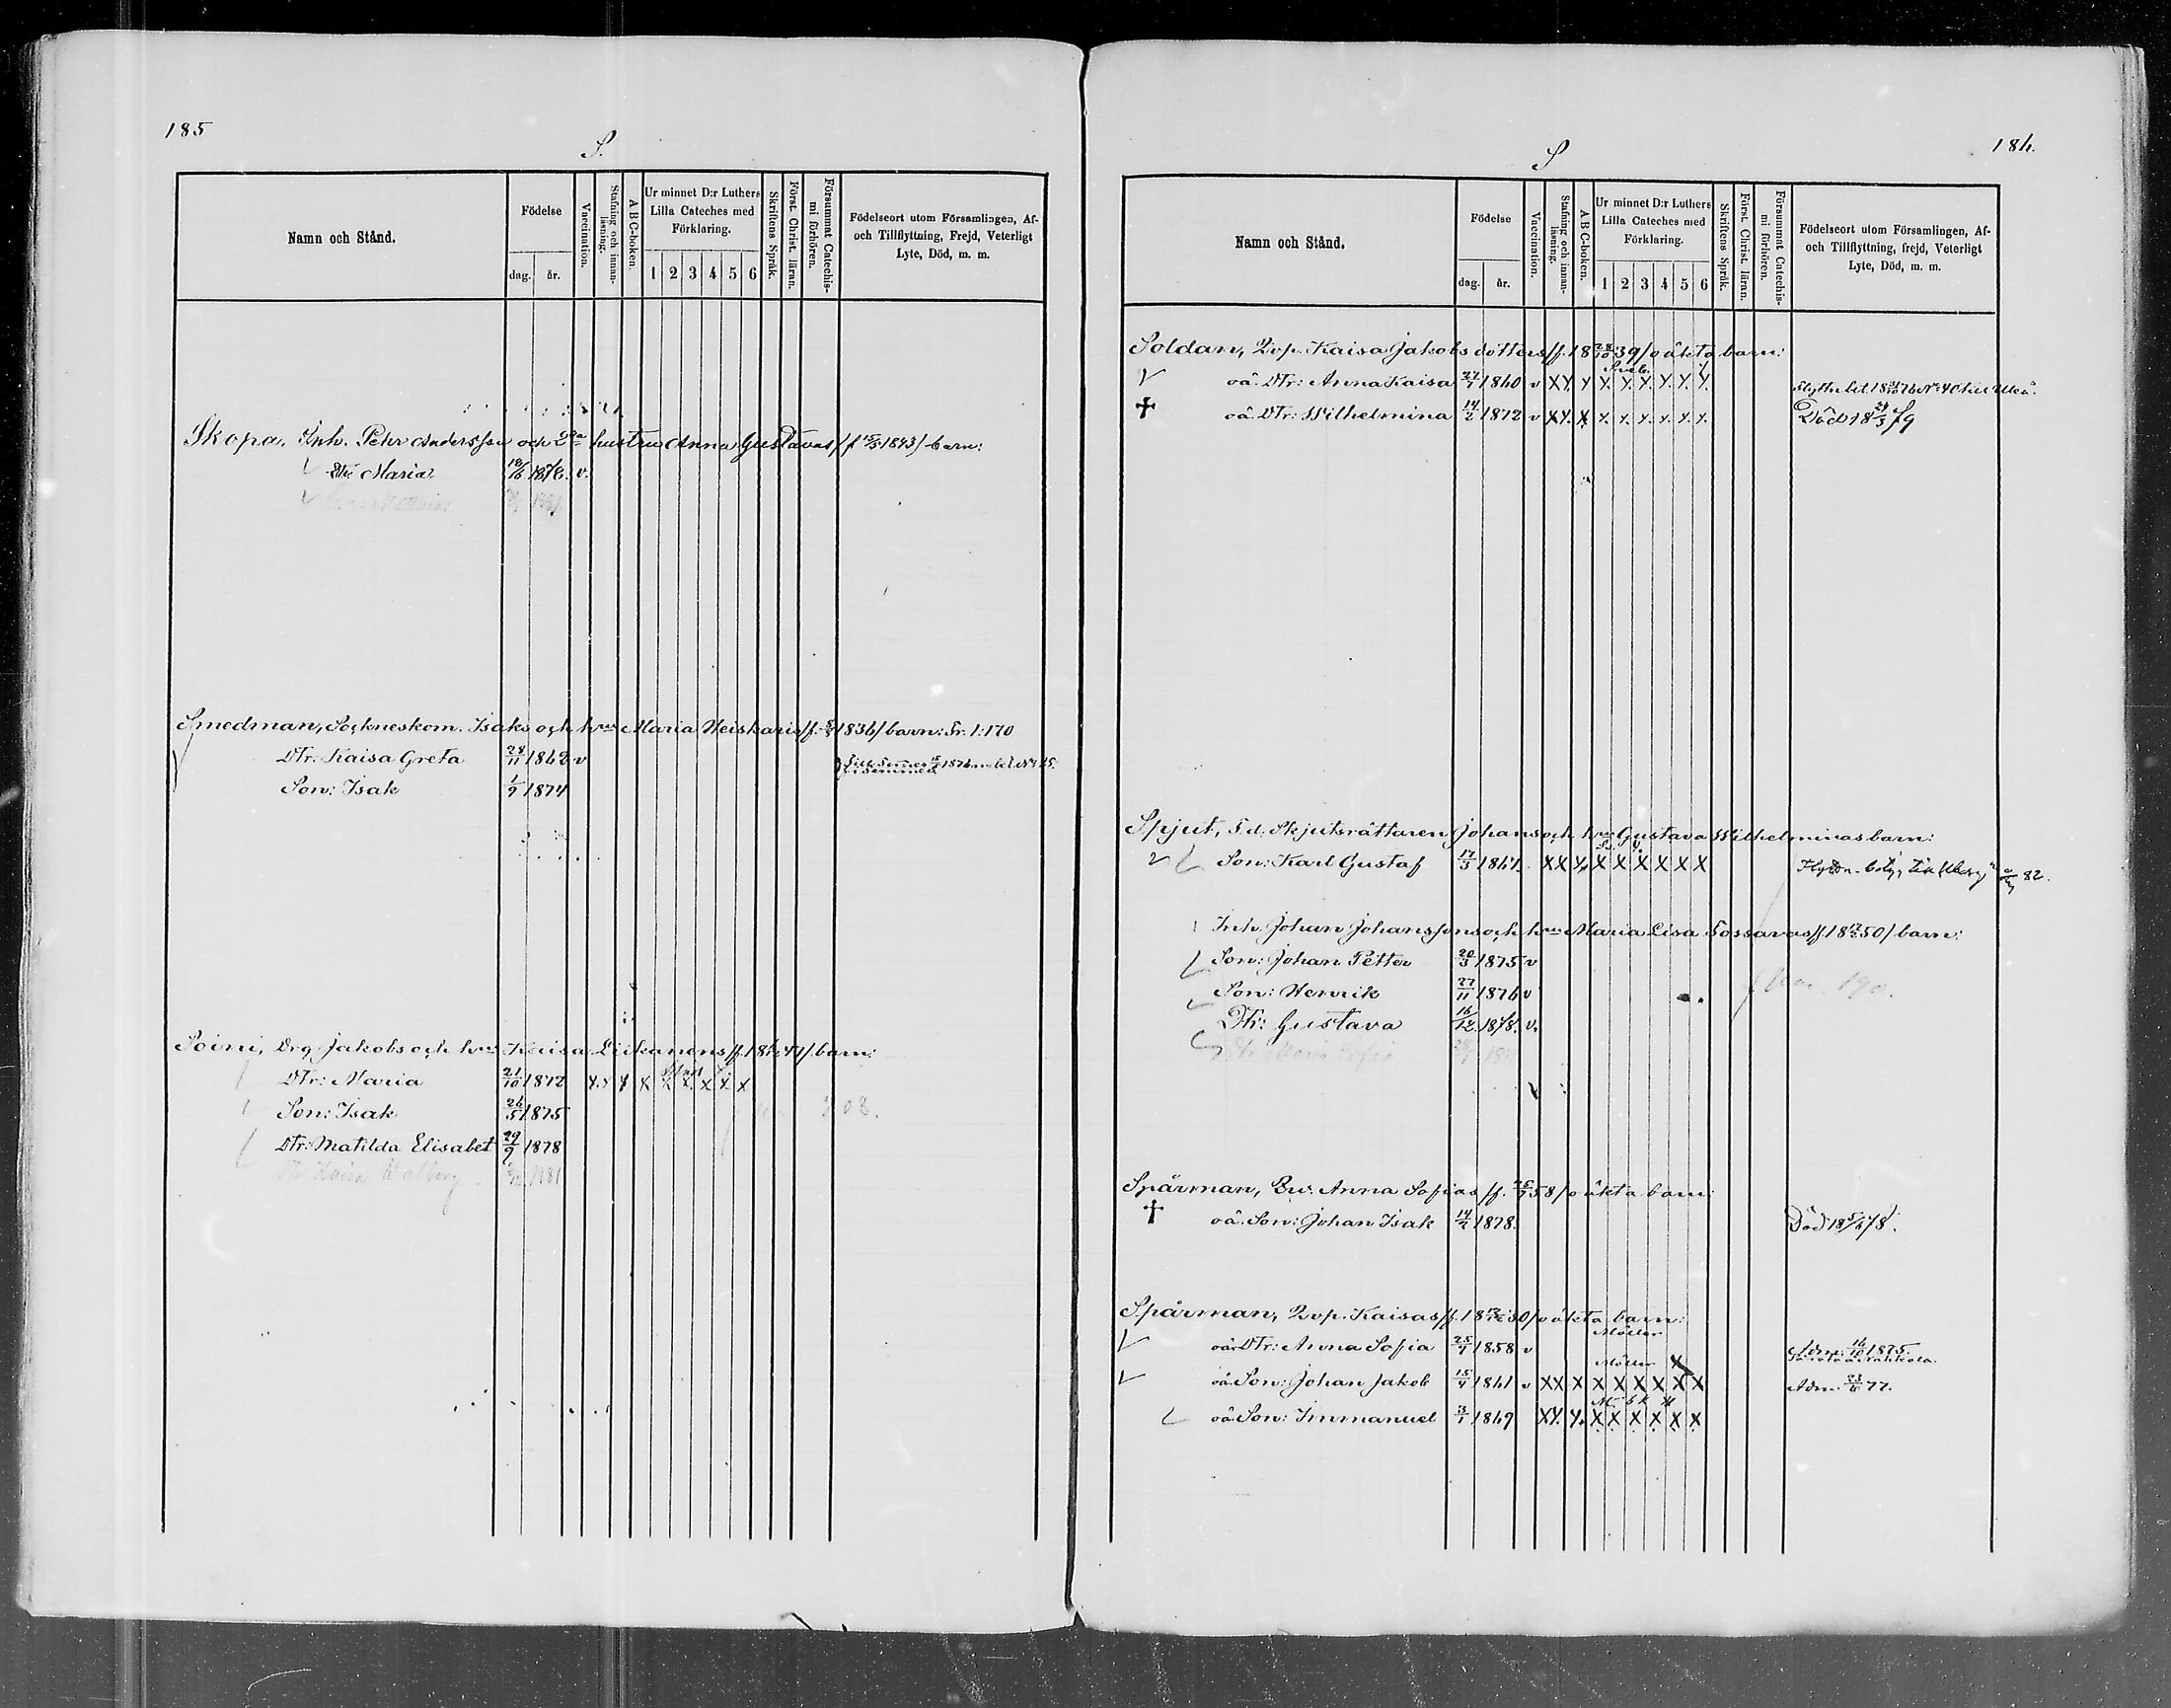 185
S.
Namn och Stånd.
Födelse
dag.
år.
Vaccination.
Stafning och innan-läsning.
A B C-boken.
Ur minnet D:r Luthers
Lilla Cateches med
Förklaring.
1 2 3 4 5 6
Skriftens Språk.
Först. Christ. läran.
Försummat Catechis-mi förhören.
Födelseort utom Församlingen, Af-
och Tillflyttning, Frejd, Veterligt
Lyte, Död, m. m.
Skopa, Inh. Pehr Andersson och 2dra hustru Anna Gustavas /f 1843/ barn:
Dtr Maria 18/6 1876. v.
Matthias
Smedman, Sockneskom. Isaks och hus Maria Heiskaris /f. 1836/ barn: Fr. 1:170
Dtr: Kaisa Greta 28/11 1862 v
Son: Isak 1/7 1874
Soini, Drg Jakobs och hus Kaisa Liikanens /f. 47/ barn:
Dtr: Maria 21/10 1872 x x x x x x x x x
Son: Isak 26/5 1875
Dtr: Matilda Elisabet 29/9 1878
Dtr: Kaisa Walborg 1881
S
186.
Namn och Stånd.
Födelse
dag.
år.
Vaccination.
Stafning och innan-läsning.
A B C-boken.
Ur minnet D:r Luthers
Lilla Cateches med
Förklaring.
1 2 3 4 5 6
Skriftens Språk.
Först. Christ. läran.
Försummat Catechis-mi förhören.
Födelseort utom Församlingen, Af-
och Tillflyttning, frejd, Veterligt
Lyte, Död, m. m.
Soldan, Qvp. Kaisa Jakobsdotters /f. 18 28/10 39/ oäkta barn:
oä. Dtr: Anna Kaisa 27/7 1860 v x x x x x x x x x
oä. Dtr: Wilhelmina 14/2 1872 v x x x x x x x x x Död 18 79
Spjut, F.d. Skjutsrättaren Johans och hus Gustava Wilhelminas barn:
Son: Karl Gustaf 17/3 1867. x x x x x x x x x 82.
Inh. Johan Johanssons och hus Maria Lisa Tossavas /f. 18 50/ barn:
Son: Johan Petter 20/3 1875 v
Son: Henrik 27/11 1876 v
Dtr: Gustava 16/12 1878. v.
Dtr Maria Sofia
Spårman, Anna Sofias /f. 25/7 58/ oäkta barn:
oä. Son: Johan Isak 14/2 1878. Död 18 5/6 78.
Spårman, Qvp. Kaisas /f. 18 30/ oäkta barn:
Möller
oä. Dtr: Anna Sofia 25/7 1858 v Adm. 1875.
Möller
oä. Son: Johan Jakob 15/4 1861 v x x x x x x x x x Adm. 77.
oä. Son: Immanuel 3/1 1869 x x x x x x x x x